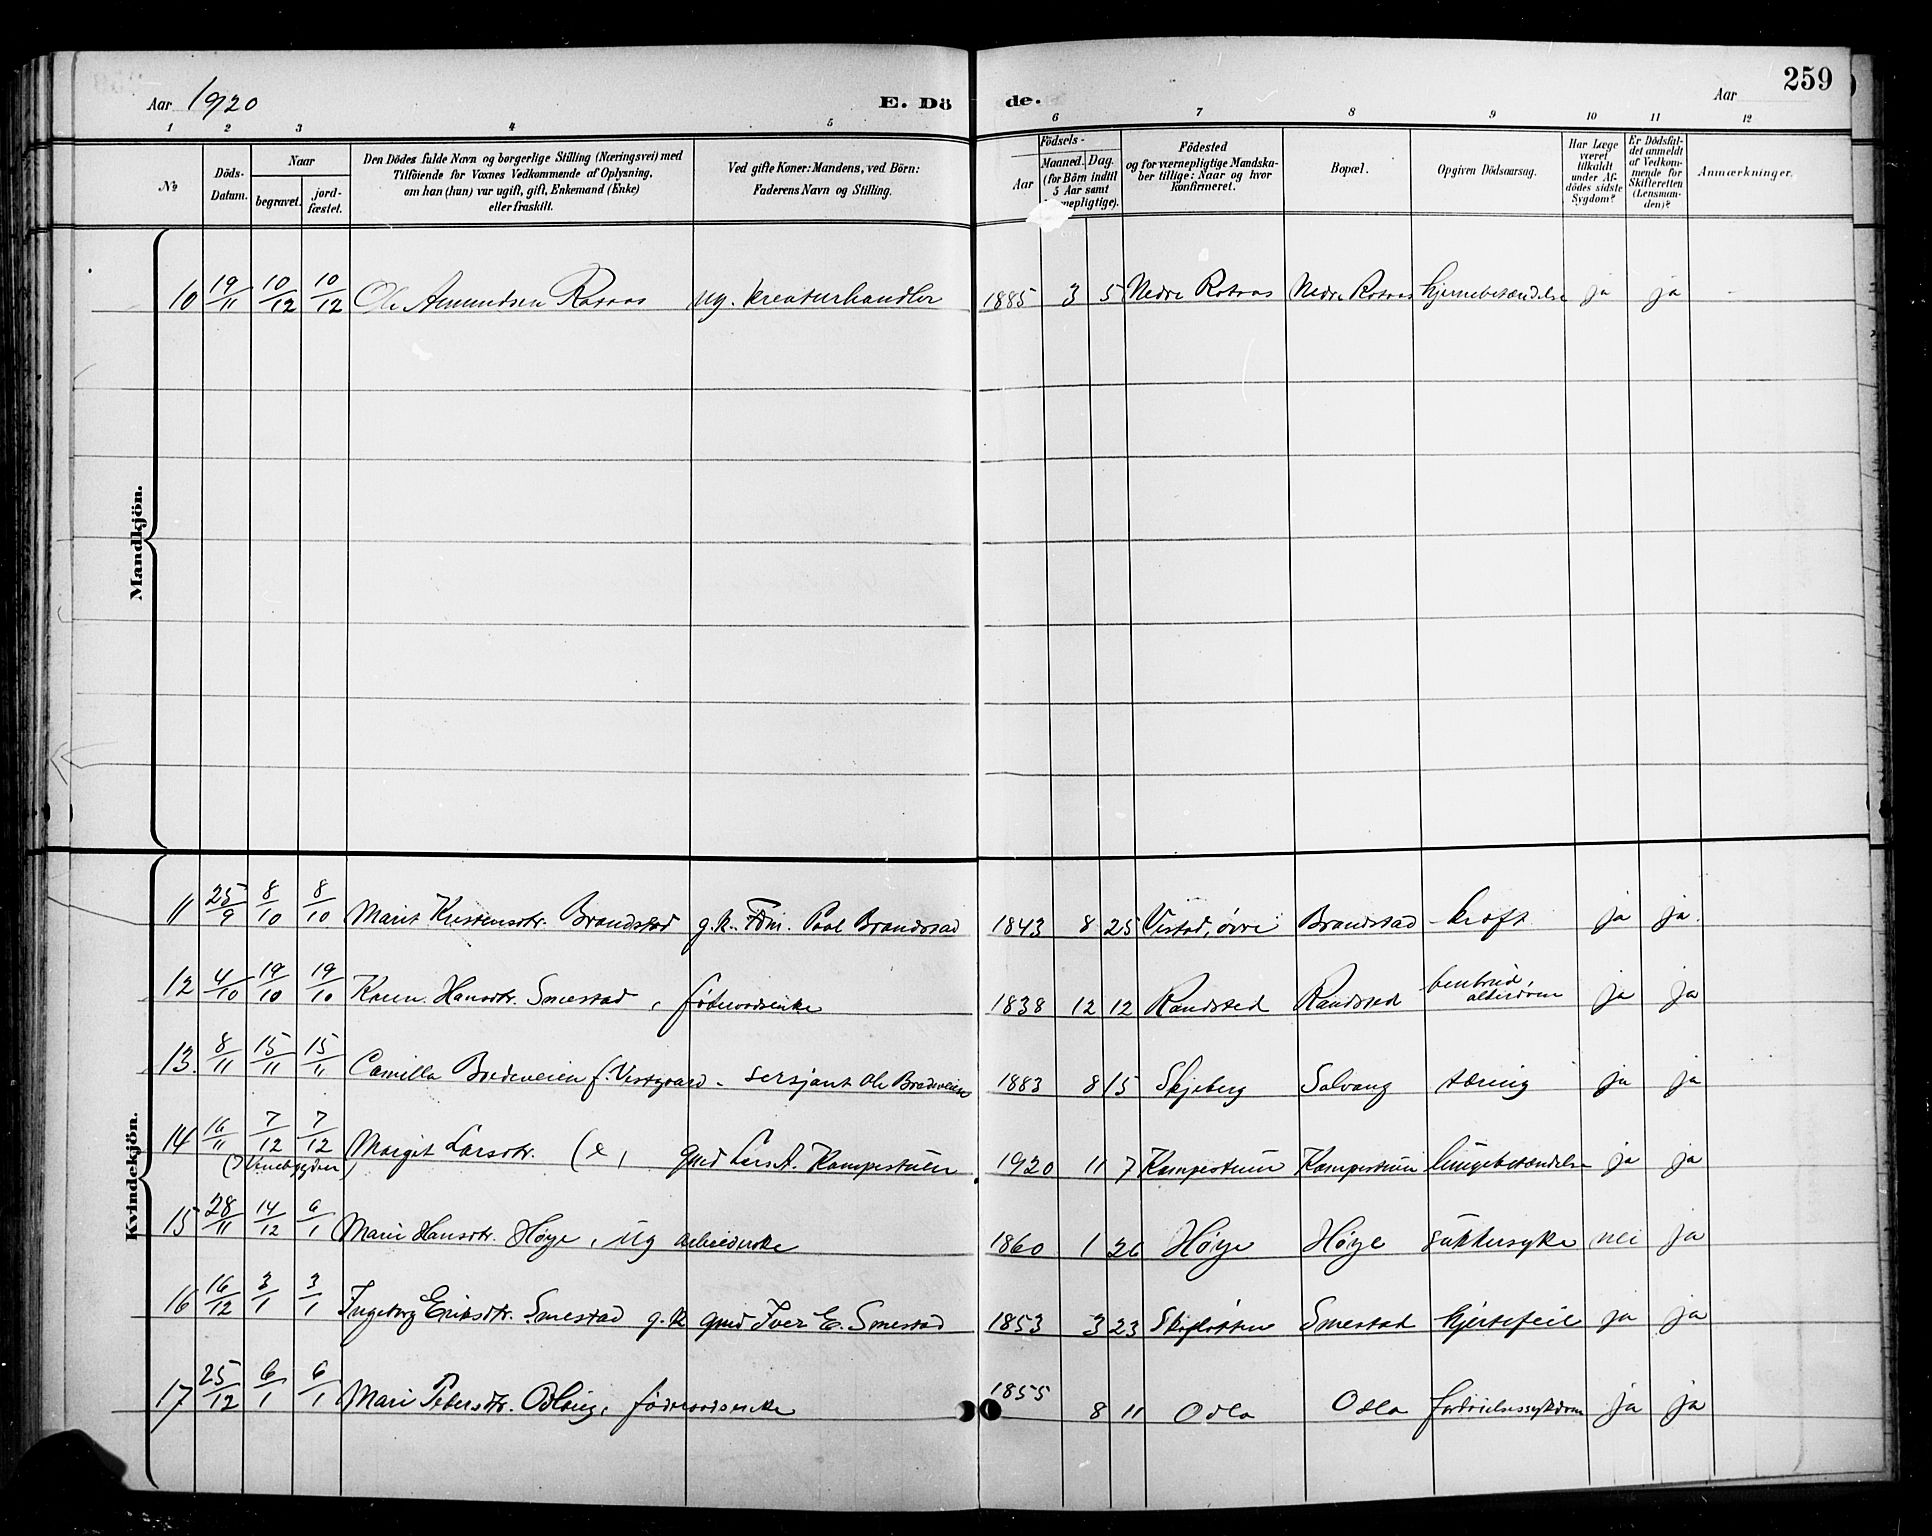 259
Aar 1920 E. Dö de. Aar
1 2 3 4 5 6 7 8 9 10 11 12
№
Döds-Datum.
Naar
begravet.
jord-fæstet.
Den Dödes fulde Navn og borgerlige Stilling (Næringsvei) med
Tilföiende for Voxnes Vedkommende af Oplysning,
om han (hun) var ugift, gift, Enkemand (Enke)
eller fraskilt.
Ved gifte Koner: Mandens, ved Börn:
Faderens Navn og Stilling.
Födsels-
Aar
Maaned. Dag.
(for Börn indtil
5 Aar samt
nepligtige).
Födested
og for værnepligtige Mandska-
ber tillige: Naar og hvor
konfirmeret.
Bopæl.
Opgiven Dödsaarsag.
Har Læge
været
tilkaldt
under Af-
dödes sidste
Sygdom?
Er Dödsfal-
det anmeldt
af Vedkom-
mende for
Skifteretten
(Lensman-
den)?
Anmærkninger.
Mandkjön.
10 19/11 10/12 10/12 Ole Amundsen Rosaas ug. kreaturhandler 1885 3 5 Nedre Rosaas Nedre Rosaas hjernebetændelse ja ja -
Kvindekjön.
11 25/9 8/10 8/10 Marit Kristensdtr. Brandstad g.k. Fdm. Paal Brandstad 1843 8 25 Vistad, øvre Brandstad kræft ja ja.
12 4/10 19/10 19/10 Karen Hansdtr. Smestad, føderaadsenke 1838 12 12 Randsted Randsted benbrud, alderdom ja ja
13. 8/11 15/11 15/11 Camilla Bredeveien f. Vestgaard - sersjant Ole Bredeveien 1883 8 15 Skjeberg Solvang tæring ja ja
14 16/11 7/12 7/12 Margit Larsdtr. (e, gmd Lars A. Kampestuen 1920 11 7 Kampestuen Kampestuen lungebetændelse ja ja
15 28/11 14/12 6/1 Mari Hansdtr. Høye, ug arbeiderske 1860 1 26 Høye Høye sukkersyke nei ja
16 16/12 3/1 3/1 Ingeborg Eriksdtr. Smestad g.k gmd Iver E. Smestad 1853 3 23 Smestad hjertefeil ja ja
17 25/12 6/1 6/1 Mari Pedersdtr. føderaadsenke 1855 8 11 Odla Odla ja ja